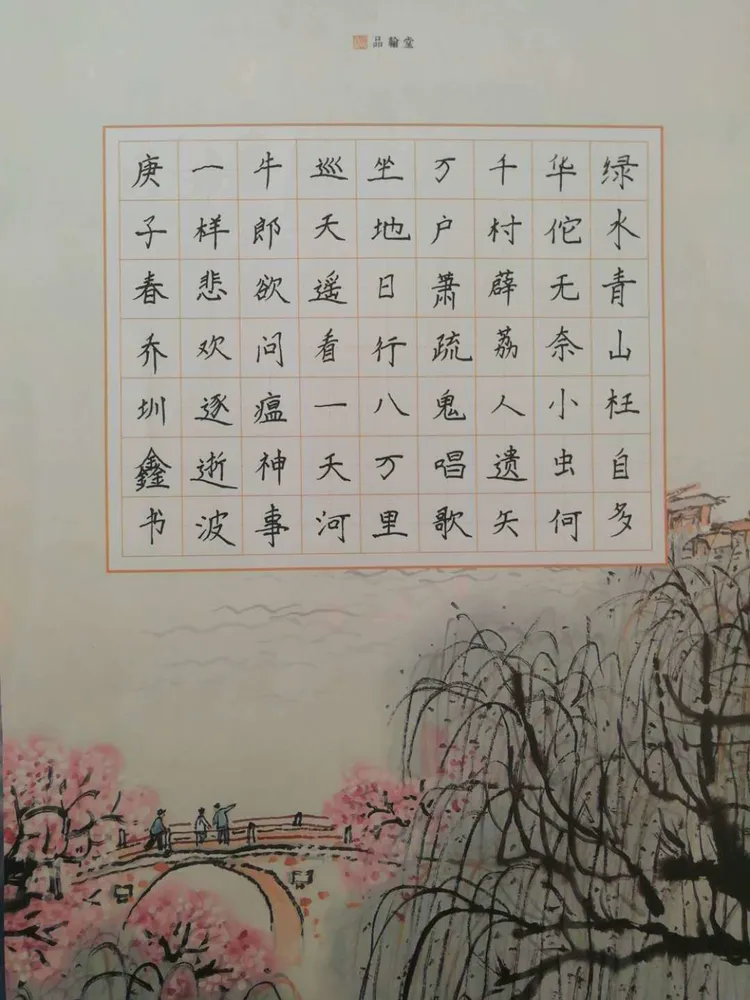 品翰堂
绿水青山枉自多
华佗无奈小虫何
千村薜荔人遗矢
万户萧疏鬼唱歌
坐地日行八万里
巡天遥看一天河
牛郎欲问瘟神事
一样悲欢逐逝波
庚子春乔圳鑫书